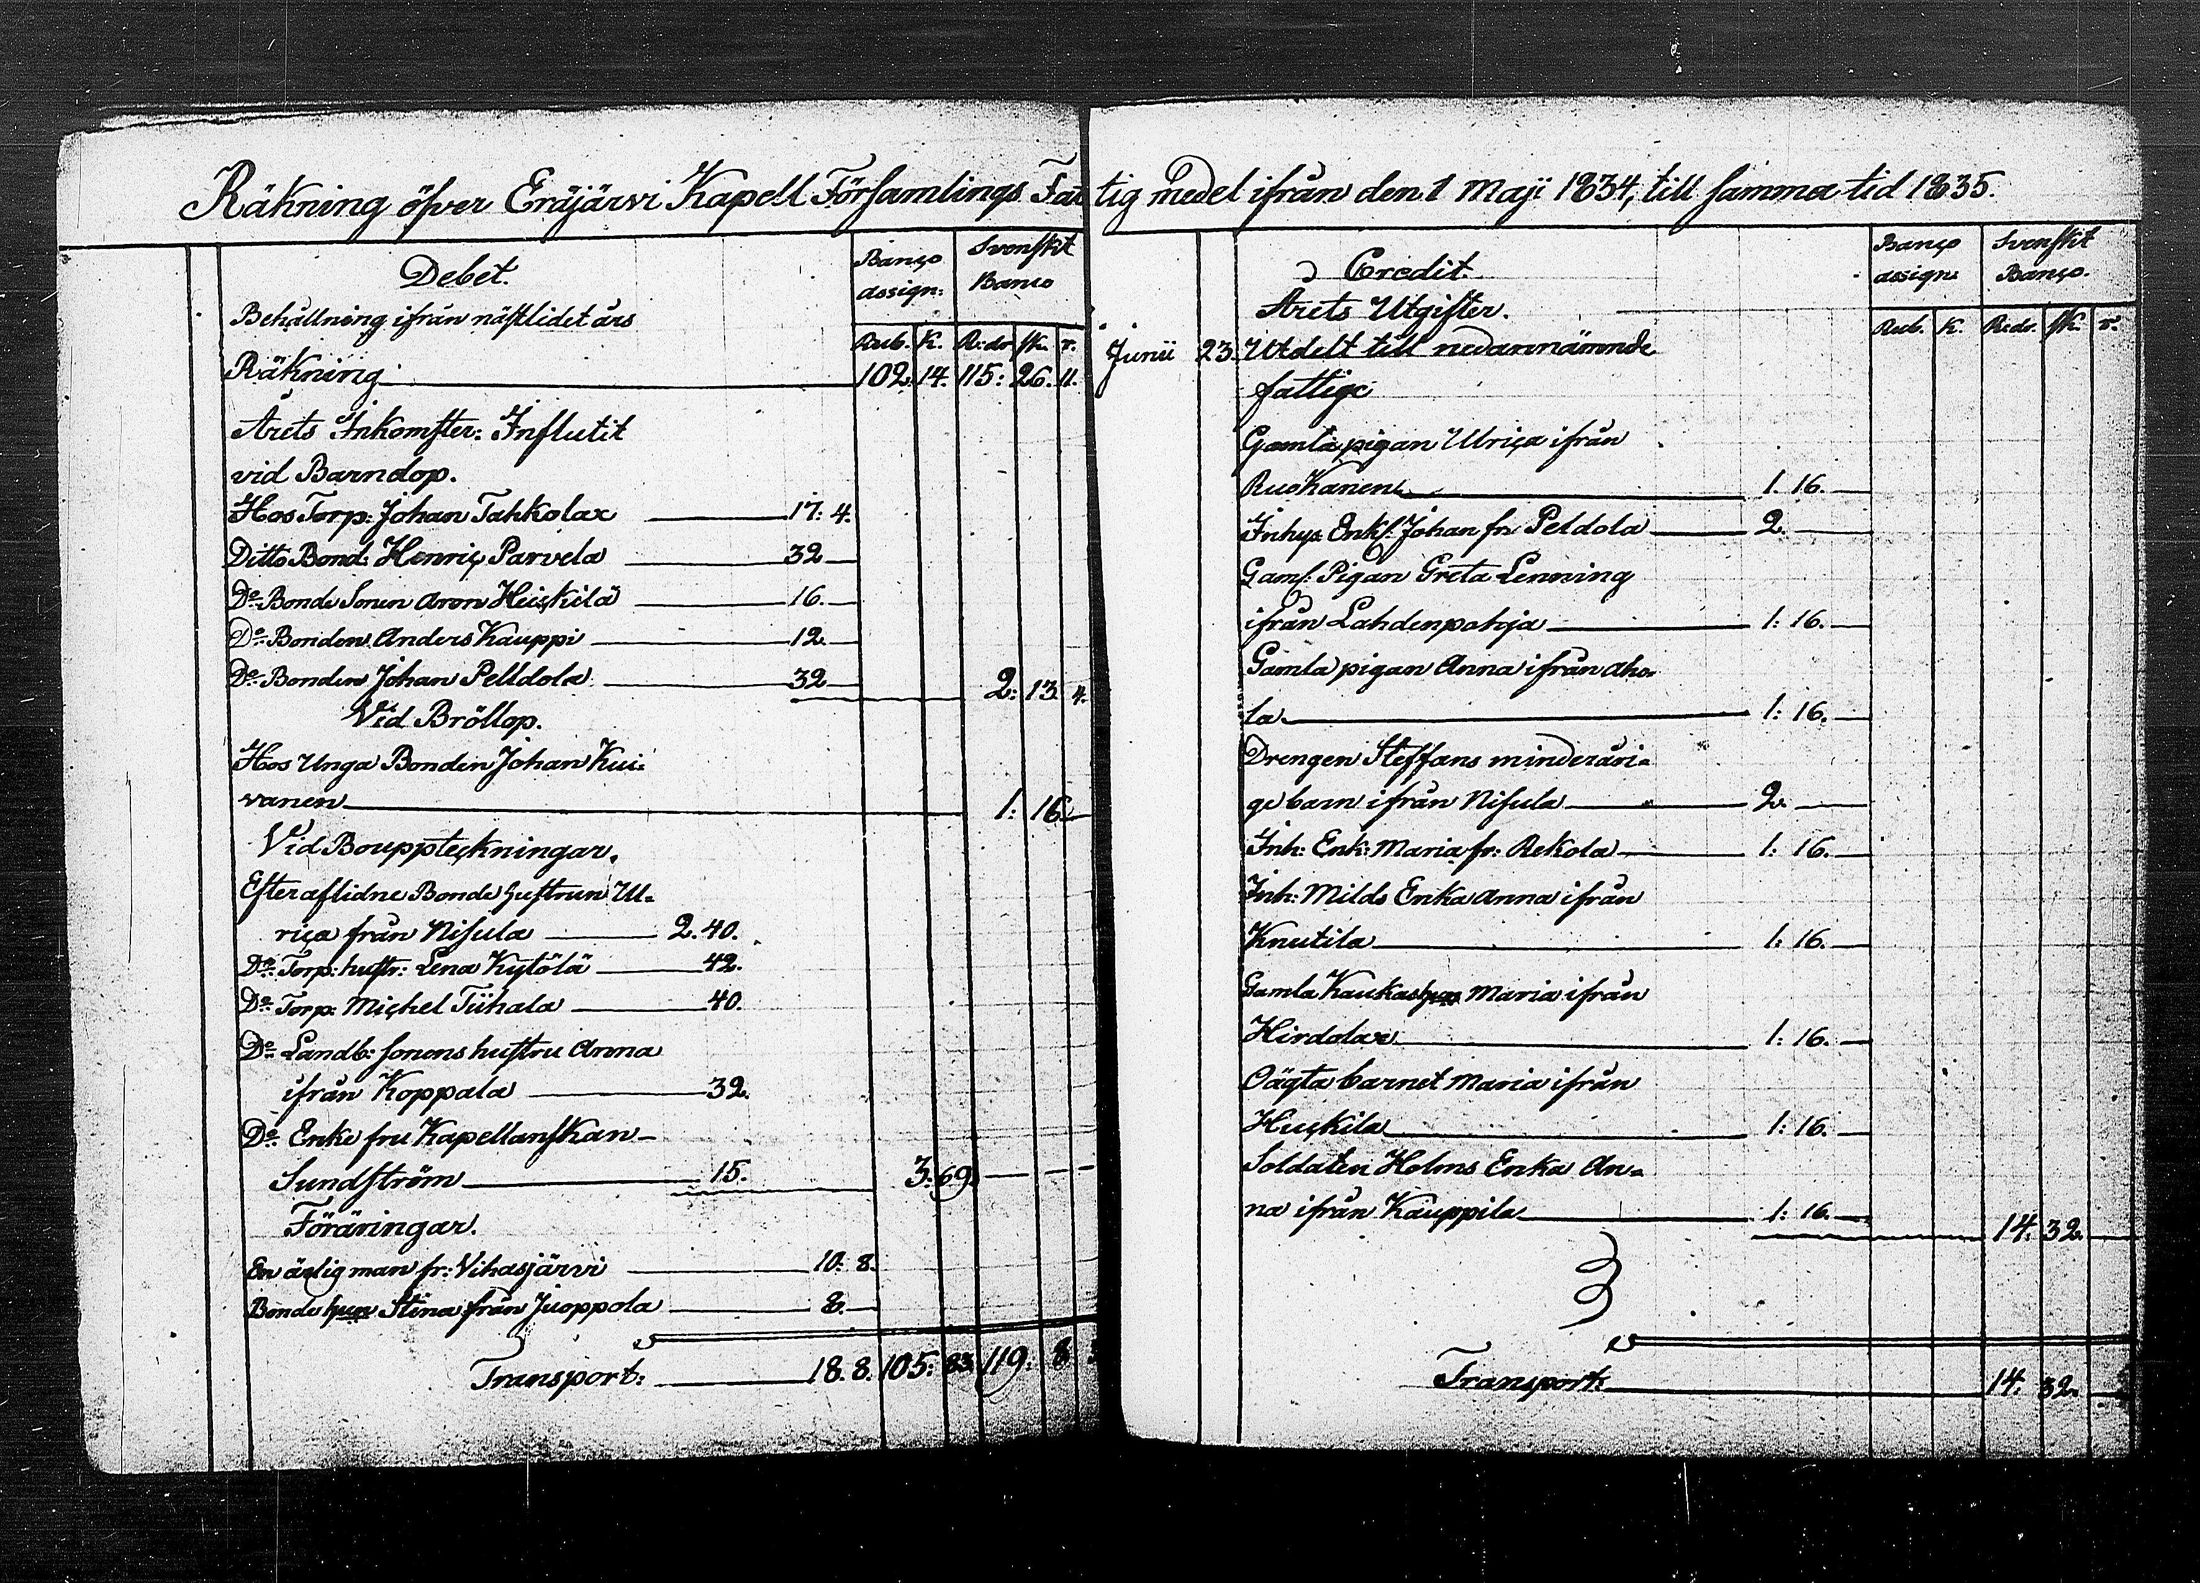 Räkning öfver Eräjärvi Kapell Församlings Fattig medel ifrån den 1 Maji 1834, till samma tid 1835.
Debet.
Banco assign: Svenskt Banco
Behållning ifrån nästlidet års
Rub. K. R:dr sk. r.
Räkning 102. 14. 115: 26. 11.
Årets Inkomster: Influtit
vid Barndop.
Hos Torp: Johan Tahkola 17: 4.
Ditto Bond: Henric Parvela 32
Do Bonde Sonen Aron Heickilä 16.
Do Bonden Anders Kauppi 12
Do Bonden Johan Pelldola 32 2: 13 4.
Vid Bröllop.
Hos Unga Bonden Johan Kui-
vanen 1: 16.
Vid Bouppteckningar.
Efter aflidne Bonde hustrun Ul-
rica från Nisula 2. 40.
Do Torp: hustr: Lena Kytölä 42.
Do Torp: Michel Tiihala 40.
Do Landb: sonens hustru Anna
ifrån Koppala 32.
Do Enke fru Kapellanskan
Sundström 15. 3: 69.
Föräringar.
En ärlig man fr: Vihasjärvi 10: 8.
Bonde hun Stina från Juoppola 8.
Transport: 18. 8. 105: 83 119. 8
Credit.
Banco assign: Svenskt Banco.
Årets Utgifter.
Rub. K. R:dr. sk. r.
Junii 23. Utdelt till nedannämnde
fattige
Gamla pigan Ulrica ifrån
Ruokanen 1. 16.
Inhys Enkl: Johan fr: Peldola 2.
Gaml: Pigan Greta Lenning
ifrån Lahdenpohja 1: 16.
Gamla pigan Anna ifrån Aho-
la 1: 16.
Drengen Steffans minderåri-
ge barn ifrån Nisula 2.
Inh: Enk: Maria fr: Rekola 1: 16.
Inh: Milds Enka Anna ifrån
Knutila 1: 16.
Gamla Maria ifrån
Hirdola 1: 16.
Oägta barnet Maria ifrån
Huckila 1: 16.
Soldaten Holms Enka An-
na ifrån Kauppila 1: 16. 14: 32.
Transport 14. 32.